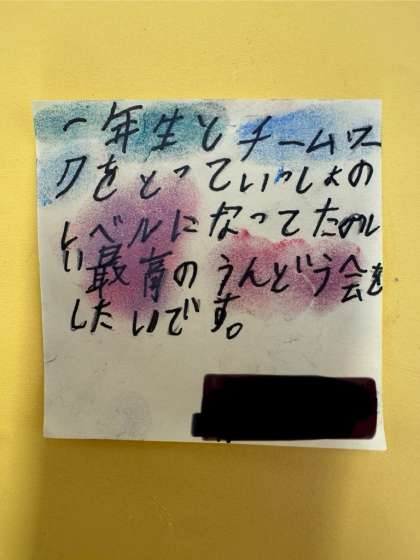 一年生とチームワー
クをとっていっしょの
レベルになってたのし
い最高のうんどう会を
したいです。